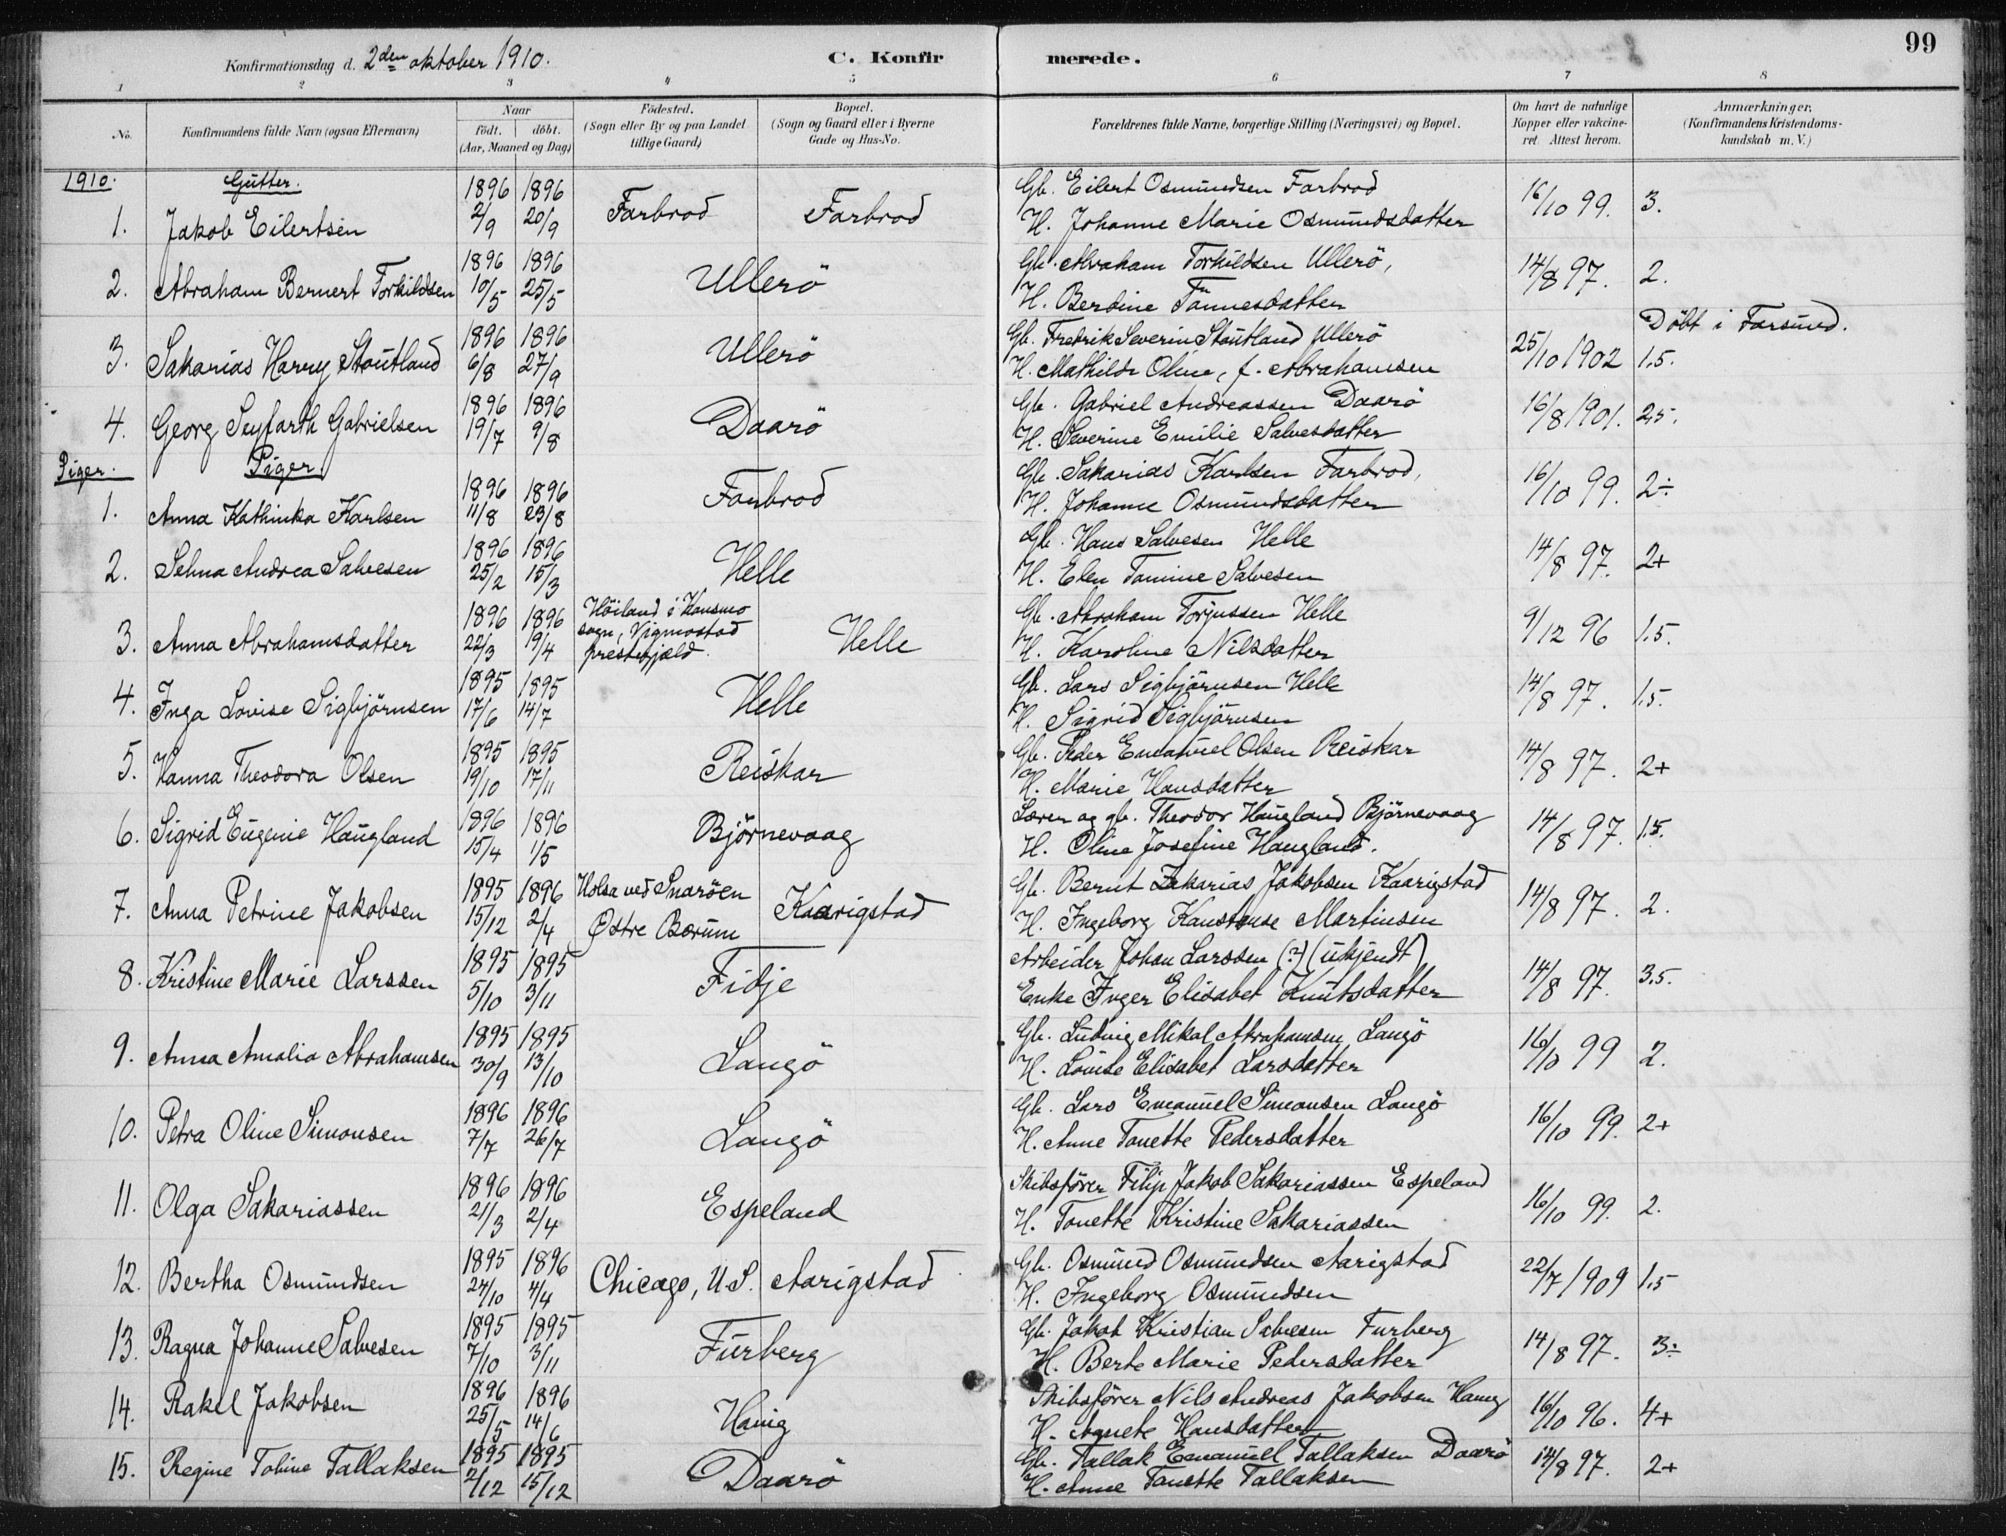 99
Konfirmationsdag d. 2den oktober 1910. C. Konfirmerede.
1 2 3 4 5 6 7 8
No. Konfirmandens fulde Navn (ogsaa Efternavn) Naar født. døbt. (Aar, Maaned og Dag) Fødested. (Sogn eller By og paa Landet tillige Gaard) Bopæl. (Sogn og Gaard eller i Byerne Gade og Hus-No. Forældrenes fulde Navne, borgerlige Stilling (Næringsvei) og Bopæl. Om havt de naturlige Kopper eller vakcineret. Attest herom. Anmærkninger, (Konfirmandens Kristendomskundskab m. V.)
1910. Gutter. 1896 1896 Gb. Eilert Osmundsen Farbrod
1. Jakob Eilertsen 2/9 20/9 Farbrod Farbrod H. Johanne Marie Osmundsdatter 16/10 99. 3.
1896 1896 Gb. Abraham Torkildsen Ullerö,
2. Abraham Bernert Torkildsen 10/5 25/5 Ullerö H. Berdine Tönnesdatter 14/8 97. 2.
1896 1896 Gb. Fredrik Severin Stoutland Ullerö Döbt i Farsund.
3. Sakarias Harry Stoutland 6/8 27/9 Ullerö H. Mathilde Oline, f. Abrahamsen 25/10 1902 1.5.
1896 1896 Gb. Gabriel Andreassen Daarö
4. Georg Seyfarth Gabrielsen 19/7 9/8 Daarö H. Severine Emilie Salvesdatter 16/8 1901. 2.5.
Piger. Piger. 1896 1896 Gb. Sakarias Karlsen Farbrod,
1. Anna Kathinka Karlsen 11/8 23/8 Farbrod H. Johanne Osmundsdatter 16/10 99. 2÷
1896 1896 Gb. Hans Salvesen Helle
2. Selma Andrea Salvesen 25/2 15/3 Helle H. Elen Tomine Salvesen 14/8 97. 2+
1896 1896 Höiland i Konsmo sogn, Vigmostad prestegjæld. Gb. Abraham Torjussen Helle
3. Anna Abrahamsdatter 22/3 19/4 Helle H. Karoline Nilsdatter 9/12 96 1.5.
1895 1895 Gb. Lars Sigbjörnsen Helle
4. Inga Lovise Sigbjörnsen 17/6 14/7 Helle H. Sigrid Sigbjörnsen 14/8 97. 1.5.
1895 1895 Gb. Peder Emanuel Olsen Reiskar
5. Hanna Theodora Olsen 19/10 17/11 Reiskar H. Marie Hansdatter 14/8 97. 2+
1896 1896 Lærer og gb. Theodor Haugland Björnevaag
6. Sigrid Eugenie Haugland 15/4 1/5 Bjørnevaag H. Oline Josefine Haugland. 14/8 97. 1.5.
1895 1896 Holsa ved Snaröen Østre Bærum Gb. Bernt Zakarias Jakobsen Kaarigstad
7. Anna Petrine Jakobsen 15/12 2/4 Kaarigstad H. Ingeborg Konstanse Martinsen 14/8 97. 2.
1895 1895 Arbeider Johan Larssen (?) (ukjendt)
8. Kristine Marie Larssen 5/10 3/11 Fidje Enke Inger Elisabet Knutsdatter 14/8 97. 3.5.
1895 1895 Gb. Ludvig Mikal Abrahamsen Langö
9. Anna Amalia Abrahamsen 30/9 13/10 Langö H. Lovise Elisabet Larsdatter 16/10 99 2.
1896 1896 Gb. Lars Emanuel Simonsen Langö
10. Petra Oline Simonsen 7/7 26/7 Langö H. Anne Tonette Pedersdatter 16/10 99. 2+
1896 1896 Skibsfører Filip Jakob Sakariassen Espeland
11. Olga Sakariassen 21/3 2/4 Espeland H. Tonette Kristine Sakariassen 16/10 99. 2.
1895 1896 Gb. Osmund Osmundsen Aarigstad
12. Bertha Osmundsen 27/10 4/4 Chicago, U.S. Aarigstad H. Ingeborg Osmundsen 22/7 1909 1.5
1895 1895 Gb. Jakob Kristian Salvesen Furberg
13. Ragna Johanne Salvesen 7/10 3/11 Furberg H. Berte Marie Pedersdatter 14/8 97. 3÷
1896 1896 Skibsfører Nils Andreas Jakobsen Haug
14. Rakel Jakobsen 25/5 14/6 Haug H. Agnete Hansdatter 16/10 96. 4+
1895 1895 Gb. Tallak Emanuel Tallaksen Daarö
15. Regine Tobine Tallaksen 2/12 15/12 Daarö H. Anne Tonette Tallaksen 14/8 97. 2+